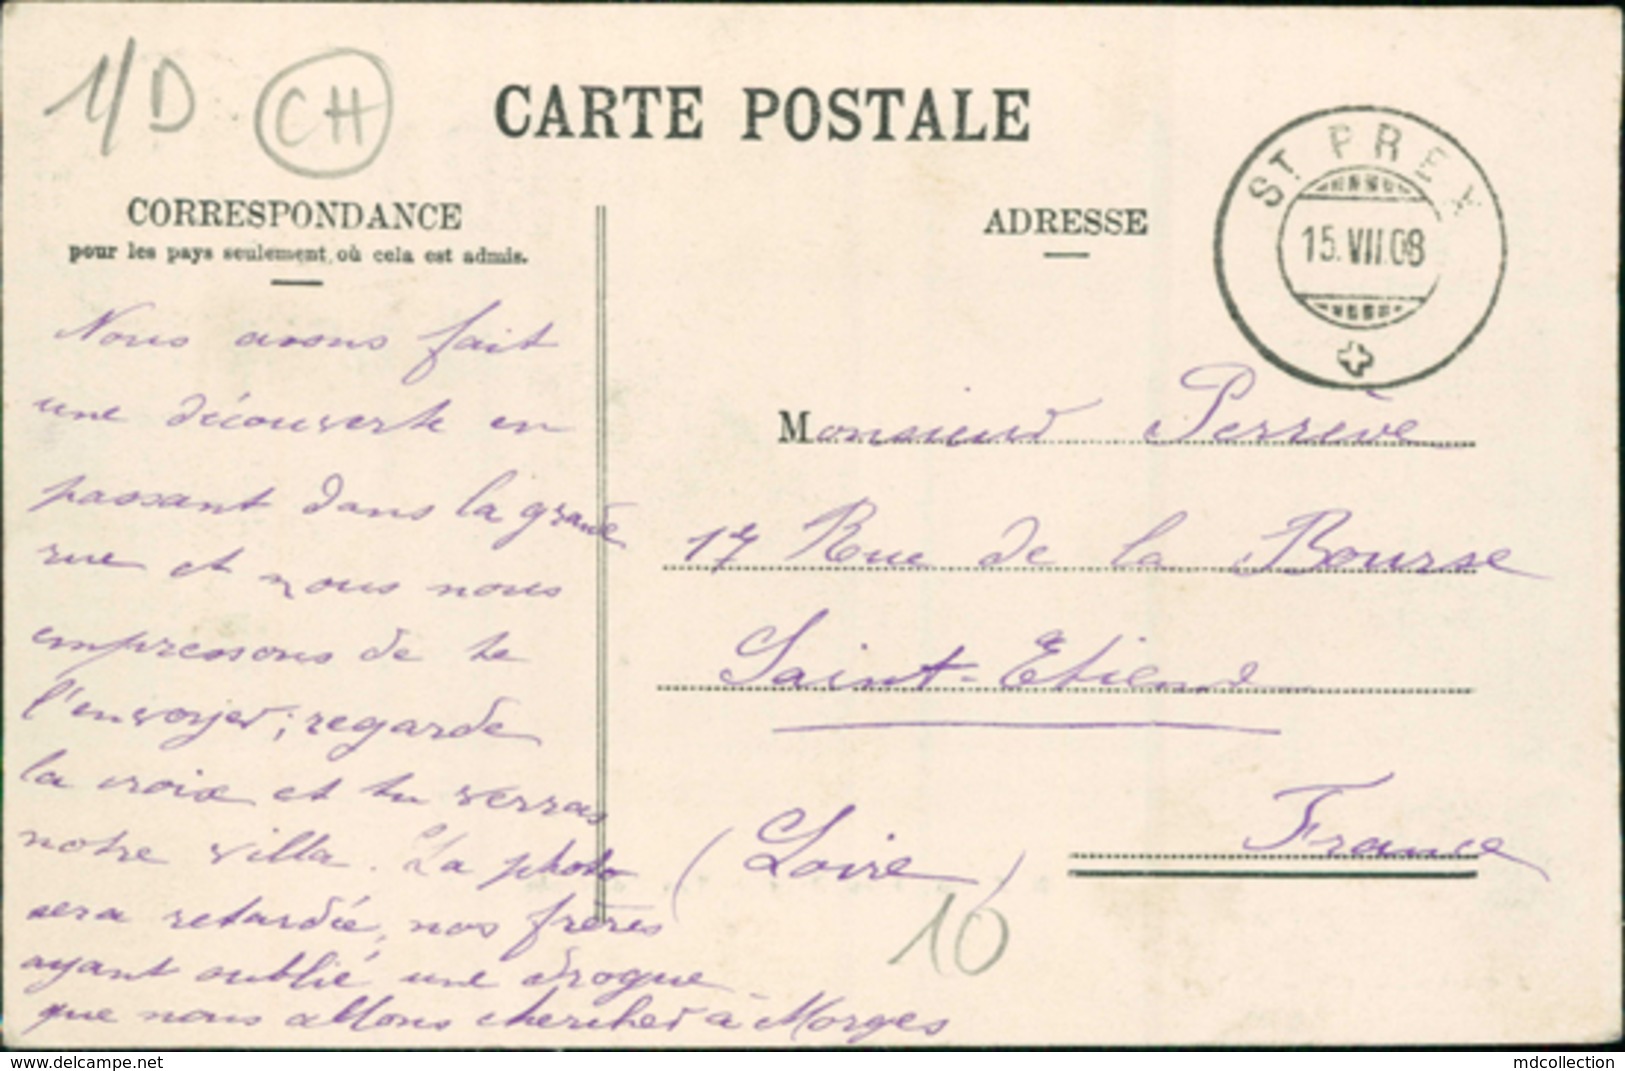 1/D CH
CARTE POSTALE
ST. PREX
15.VII.08
CORRESPONDANCE
pour les pays seulement où cela est admis.
ADRESSE
Nous avons fait
une découverte en
passant dans la grande
rue et nous nous
empressons de te
l'envoyer; regarde
la croix et tu verras
notre villa. La photo
sera retardée, nos frères
ayant oublié une drogue
que nous allons chercher à Morges
Monsieur Perrève
17 Rue de la Bourse
Saint-Etienne
(Loire) France
10
delcampe.net
mdcollection